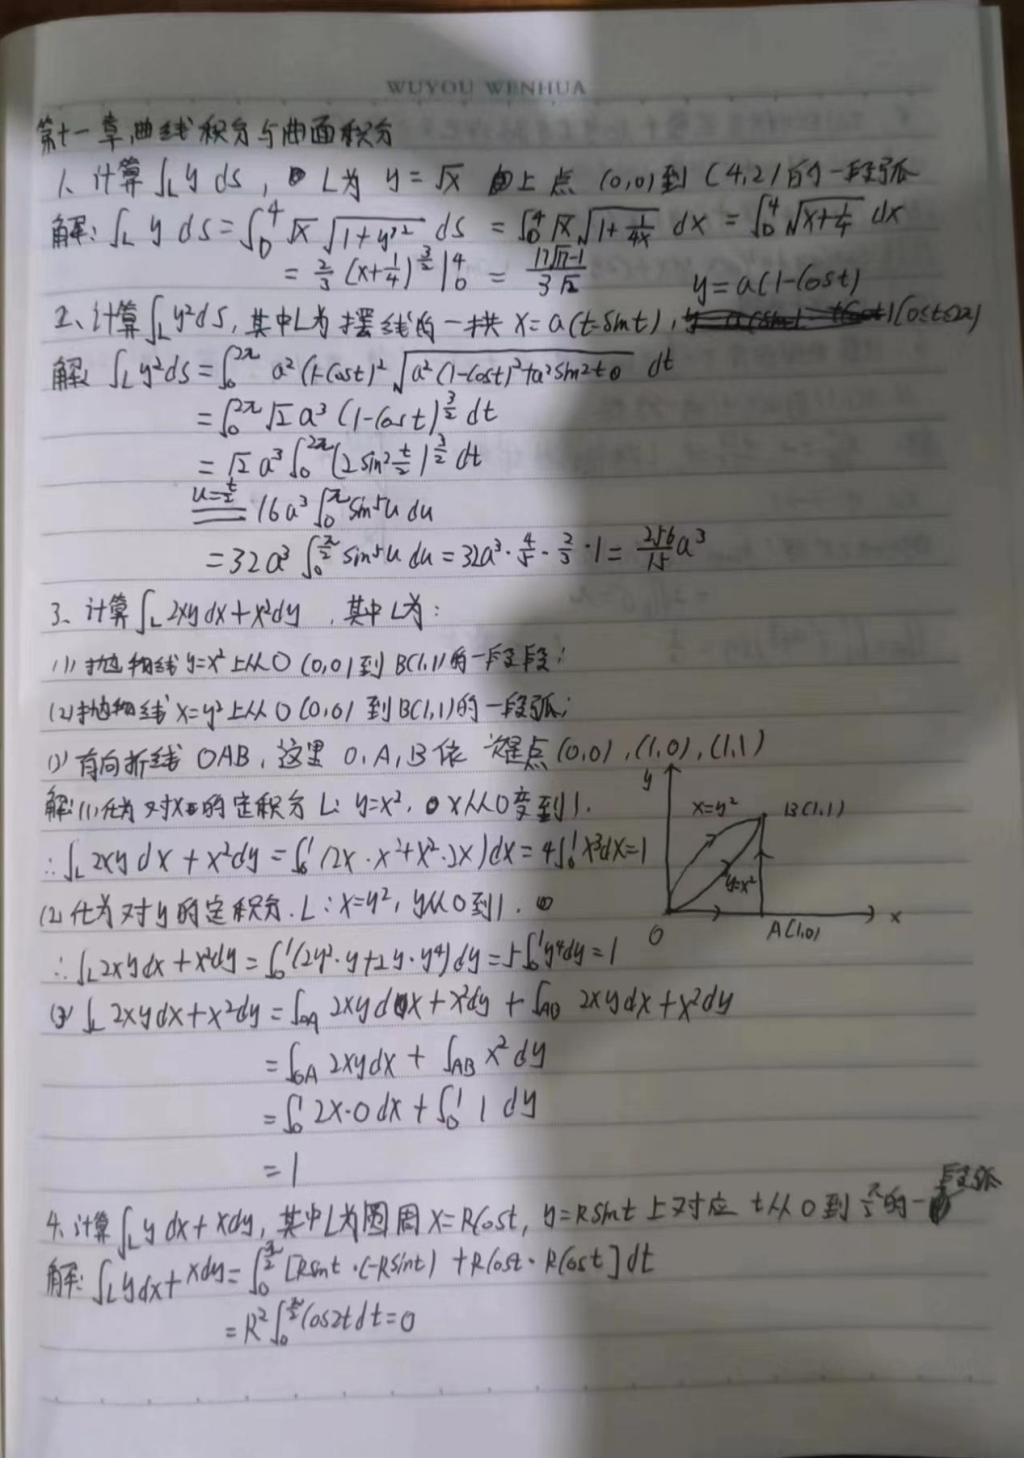 WUYOU WENHUA
第十一章 曲线积分与曲面积分
1、计算∫_L y ds, L为 y=√x 上点 (0,0)到(4,2)的一段弧
解:∫_L y ds=∫_0^4 √x √(1+y'²) ds = ∫_0^4 √x √(1+1/4x) dx = ∫_0^4 √(x+1/4) dx
= 2/3 (x+1/4)^(3/2) |_0^4 =
y=a(1-cost)
2、计算∫_L y²ds, 其中L为摆线的一拱 x=a(t-sint), (0≤t≤2π)
解: ∫_L y²ds=∫_0^2π a²(1-cost)² √(a²(1-cost)²+a²sin²t) dt
=∫_0^2π √2 a³ (1-cost)^(3/2) dt
= √2 a³ ∫_0^2π (2sin² t/2)^(3/2) dt
u=t/2 16a³ ∫_0^π sin⁵u du
=32a³ ∫_0^(π/2) sin⁵u du=32a³·4/5·2/3·1=256/15 a³
3、计算∫_L 2xydx+x²dy, 其中L为:
(1)抛物线 y=x² 上从O(0,0)到B(1,1)的一段;
(2)抛物线 x=y² 上从O(0,0)到B(1,1)的一段弧;
有向折线 OAB, 这里 O,A,B依 是点(0,0),(1,0),(1,1)
解:(1)化为对x的定积分 L: y=x², x从0变到1.
∴∫_L 2xydx+x²dy=∫_0^1 (2x·x²+x²·2x)dx=4∫_0^1 x³dx=1
(2)化为对y的定积分. L:x=y², y从0到1.
∴∫_L 2xydx+x²dy=∫_0^1(2y²·y+2y·y⁴)dy=5∫_0^1 y⁴dy=1
y
x=y²
B(1,1)
y=x²
O
A(1,0)
x
(3) ∫_L 2xydx+x²dy=∫_OA 2xydx+x²dy+∫_AB 2xydx+x²dy
=∫_OA 2xydx+∫_AB x²dy
=∫_0^1 2x·0dx+∫_0^1 1 dy
=1
4、计算∫_L ydx+xdy, 其中L为圆周 x=Rcost, y=Rsint 上对应 t从0到π/2的一段弧
解:∫_L ydx+xdy=∫_0^(π/2) [Rsint·(-Rsint)+Rcost·Rcost]dt
=R²∫_0^(π/2) cos2tdt=0